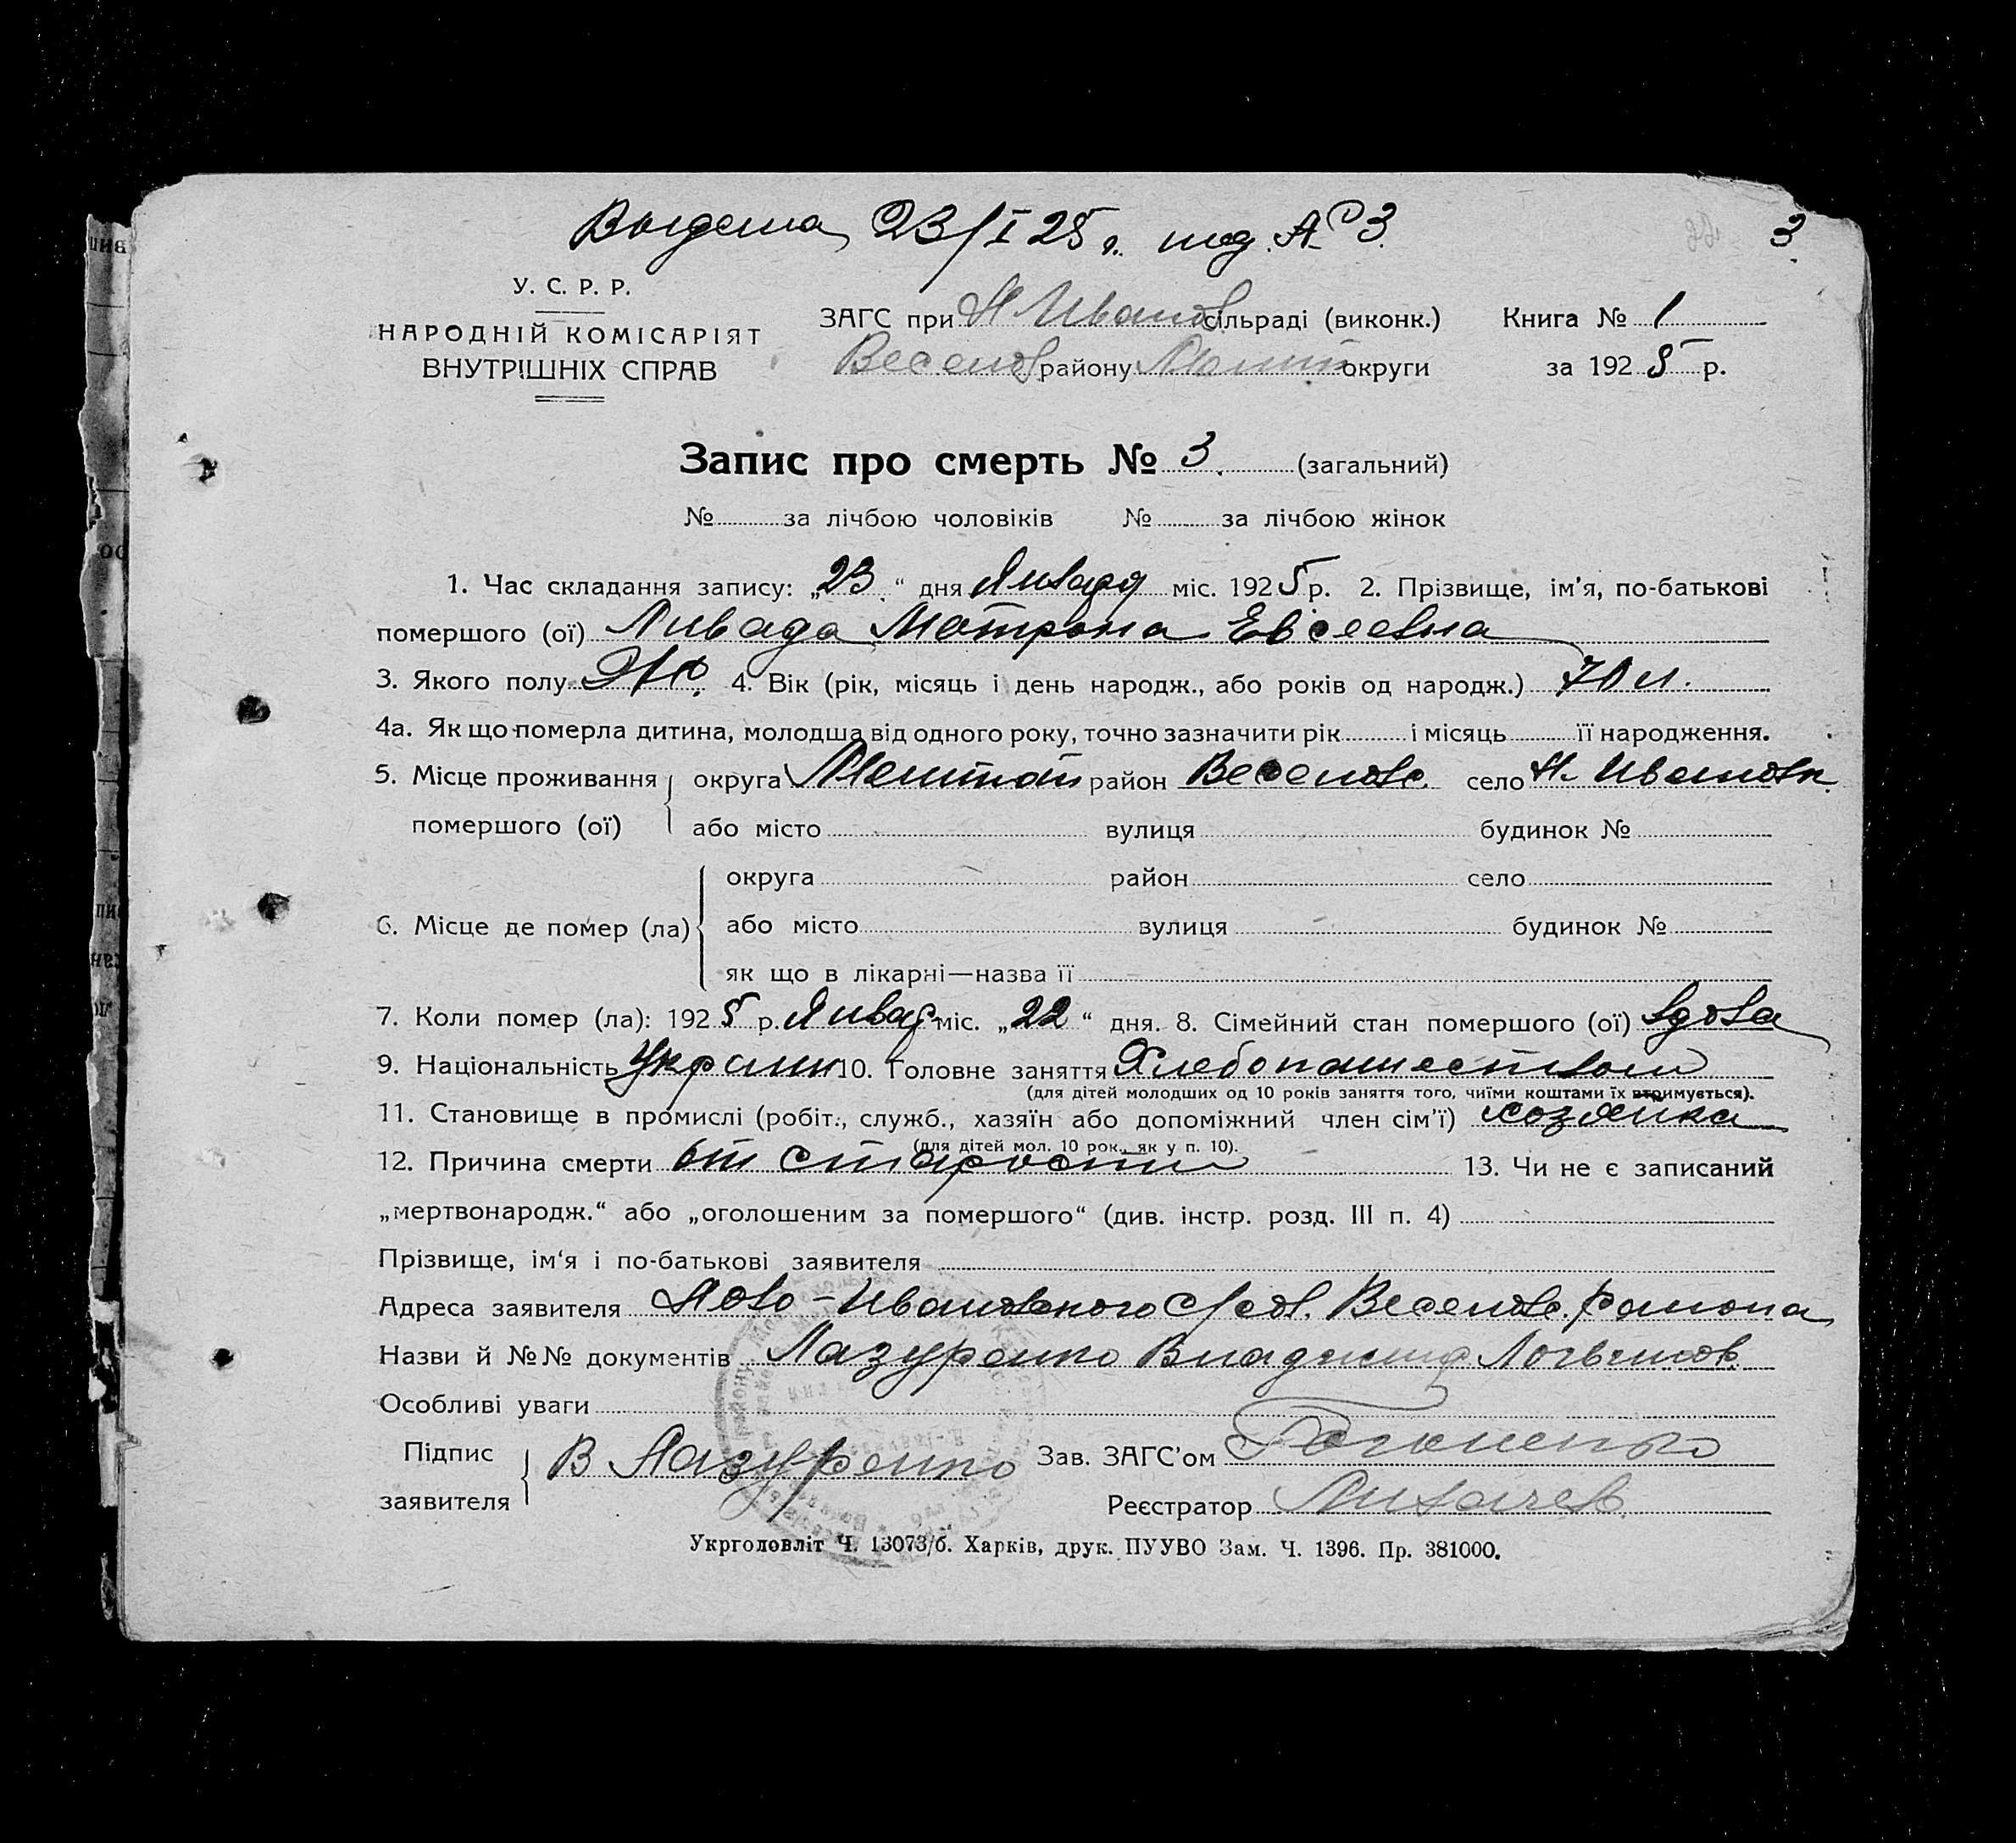 Выдена 23/I 25 г. под № 3.
3
У. С. Р. Р.
НАРОДНІЙ КОМІСАРІЯТ
ВНУТРІШНІХ СПРАВ
ЗАГС при Н Иванов сільраді (виконк.) Книга № 1
Веселов району Мелит округи за 1925 р.
Запис про смерть № 3. (загальний)
№ за лічбою чоловіків № за лічбою жінок
1. Час складання запису: „23“ дня Января міс. 1925 р. 2. Прізвище, ім'я, по-батькові
помершого (ої) Ливада Матрона Евсеевна
3. Якого полу Ж. 4. Вік (рік, місяць і день народж., або років од народж.) 70 л.
4а. Як що померла дитина, молодша від одного року, точно зазначити рік і місяць її народження.
5. Місце проживання округа Мелитоп район Веселовс. село Н. Ивановк.
помершого (ої) або місто вулиця будинок №
округа район село
6. Місце де помер (ла) або місто вулиця будинок №
як що в лікарні—назва її
7. Коли помер (ла): 1925 р. Январ міс. „22“ дня. 8. Сімейний стан помершого (ої) вдова
9. Національність Украин 10. Головне заняття Хлебопашеством
(для дітей молодших од 10 років заняття того, чиїми коштами їх втримується).
11. Становище в промислі (робіт., служб., хазяїн або допоміжний член сім'ї) хозяйка
(для дітей мол. 10 рок., як у п. 10).
12. Причина смерти от старости 13. Чи не є записаний
„мертвонародж.“ або „оголошеним за помершого“ (див. інстр. розд. III п. 4)
Прізвище, ім'я і по-батькові заявителя
Адреса заявителя Ново-Ивановского с/сов. Веселовс. района
Назви й №№ документів Лазуренко Владимир Логвинов.
Особливі уваги
Підпис
заявителя В Лазуренко
Зав. ЗАГС'ом
Реєстратор Лихачев
Укрголовліт Ч. 13073/б. Харків, друк. ПУУВО Зам. Ч. 1396. Пр. 381000.